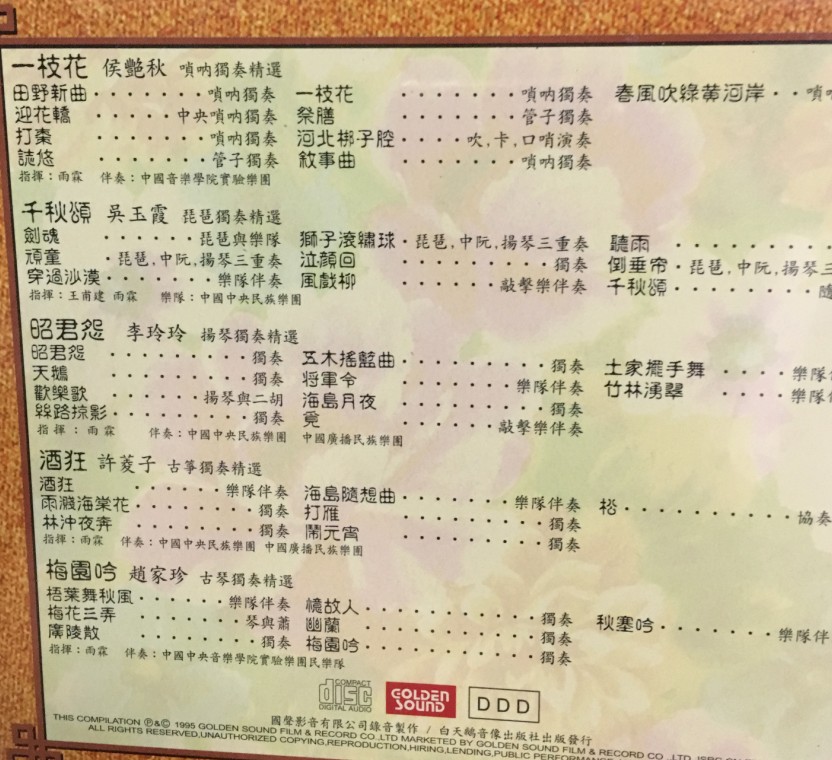 一枝花 侯艷秋 嗩吶獨奏精選
田野新曲·······嗩吶獨奏 一枝花·······嗩吶獨奏 春風吹綠黃河岸··嗩吶
迎花轎·····中央嗩吶獨奏 祭膳·······管子獨奏
打棗·······嗩吶獨奏 河北梆子腔····吹,卡,口哨演奏
誌悠·······管子獨奏 敘事曲·······嗩吶獨奏
指揮:雨霖 伴奏:中國音樂學院實驗樂團
千秋頌 吳玉霞 琵琶獨奏精選
劍魂······琵琶與樂隊 獅子滾繡球·琵琶,中阮,揚琴三重奏 聽雨
頑童·琵琶,中阮,揚琴三重奏 泣顏回········獨奏 倒垂帘·琵琶,中阮,揚琴三
穿過沙漠······樂隊伴奏 風戲柳······敲擊樂伴奏 千秋頌
指揮:王甫建 雨霖 樂隊:中國中央民族樂團
昭君怨 李玲玲 揚琴獨奏精選
昭君怨·········獨奏 五木搖籃曲·······獨奏 土家擺手舞····樂隊
天鵝·········獨奏 將軍令······樂隊伴奏 竹林湧翠····樂隊
歡樂歌······揚琴與二胡 海島月夜·······獨奏
絲路掠影·······獨奏 覓······敲擊樂伴奏
指揮:雨霖 伴奏:中國中央民族樂團 中國廣播民族樂團
酒狂 許菱子 古箏獨奏精選
酒狂······樂隊伴奏 海島隨想曲······樂隊伴奏 松·········協奏
雨濺海棠花······獨奏 打雁·········獨奏
林沖夜奔·······獨奏 鬧元宵·········獨奏
指揮:雨霖 伴奏:中國中央民族樂團 中國廣播民族樂團
梅園吟 趙家珍 古琴獨奏精選
梧葉舞秋風·····樂隊伴奏 憶故人·········獨奏 秋塞吟······樂隊伴
梅花三弄······琴與蕭 幽蘭·········獨奏
廣陵散·······獨奏 梅園吟·········獨奏
指揮:雨霖 伴奏:中國中央音樂學院實驗樂團民樂隊
COMPACT disc DIGITAL AUDIO GOLDEN SOUND DDD
國聲影音有限公司錄音製作 / 白天鵝音像出版社出版發行
THIS COMPILATION ℗&© 1995 GOLDEN SOUND FILM & RECORD CO.,LTD MARKETED BY GOLDEN SOUND FILM & RECORD CO .,LTD
ALL RIGHTS RESERVED,UNAUTHORIZED COPYING,REPRODUCTION,HIRING,LENDING,PUBLIC